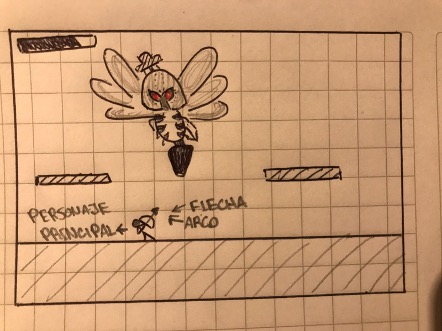 PERSONAJE
PRINCIPAL
FLECHA
ARCO